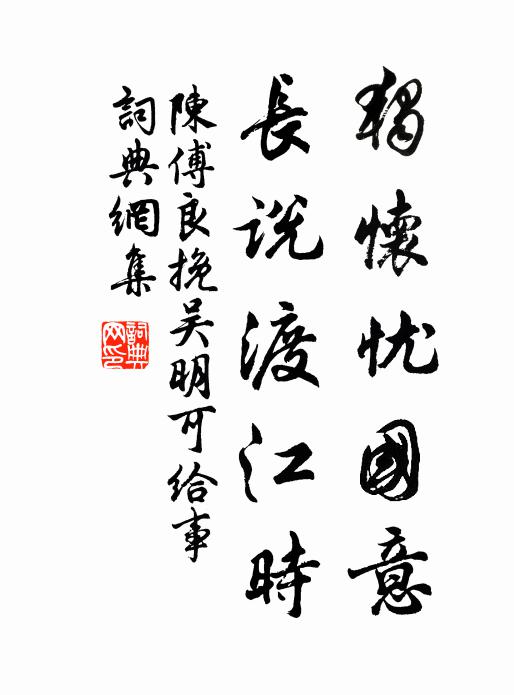 獨懷忧國意
長説渡江時
陳傅良挽吴明可给事
詞典網集
詞典
网印